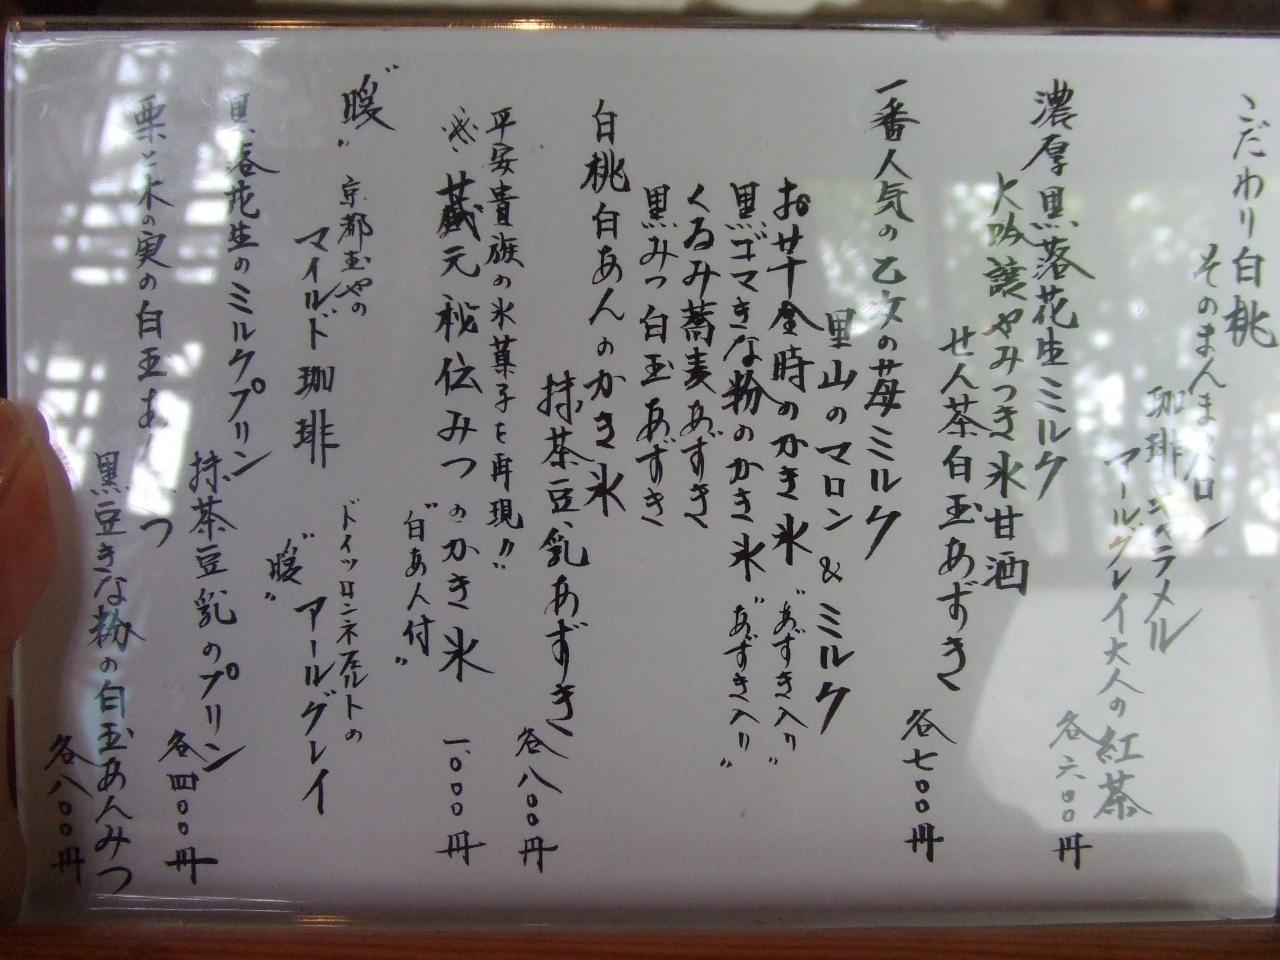 こだわり白桃
そのまんまメロン
珈琲キャラメル
アールグレイ大人の紅茶
各六〇〇円
濃厚黒落花生ミルク
大吟譲やみつき氷甘酒
せん茶白玉あずき
各七〇〇円
一番人気の乙女の苺ミルク
里山のマロン&ミルク
お芋金時のかき氷"あずき入り"
黒ゴマきな粉のかき氷"あずき入り"
くるみ蕎麦あずき
黒みつ白玉あずき
白桃白あんのかき氷
抹茶豆乳あずき
各八〇〇円
平安貴族の氷菓子を再現!!
蔵元秘伝みつのかき氷
"白あん付"
一、〇〇〇円
"暖" 京都玉やの
マイルド珈琲
ドイツロンネフェルトの
"暖" アールグレイ
黒落花生のミルクプリン
抹茶豆乳のプリン
各四〇〇円
栗と木の実の白玉あんみつ
黒豆きな粉の白玉あんみつ
各八〇〇円